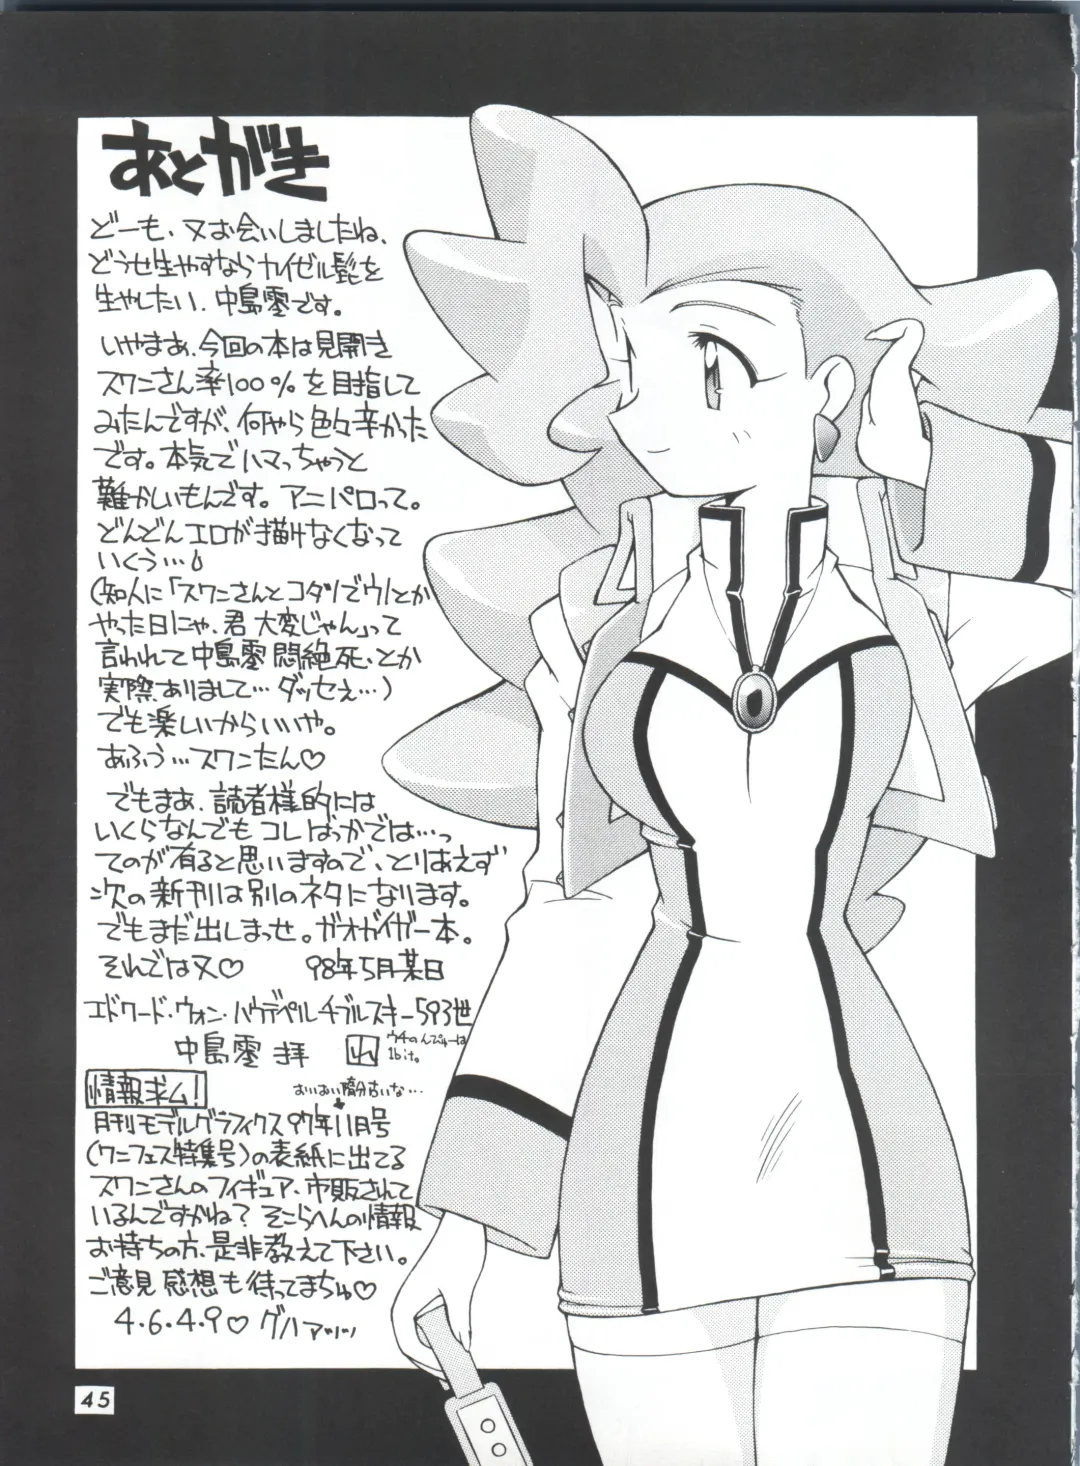 あとがき
どーも、又お会いしましたね、
どうせ生やすならカイゼル髭を
生やしたい、中島零です。
いやまあ、今回の本は見開き
スワンさん率100%を目指して
みたんですが、何やら色々辛かった
です。本気でハマっちゃうと
難かしいもんです。アニパロって。
どんどんエロが描けなくなって
いくぅ…
(知人に「スワンさんとコタツでウノとか
やった日にゃ、君 大変じゃん」って
言われて中島零 悶絶死、とか
実際ありまして… ダッセえ…)
でも楽しいからいいや。
あふぅ…スワンたん♡
でもまあ、読者様的には
いくらなんでも コレばっかでは…っ
てのが有ると思いますので、とりあえず
次の新刊は別のネタになります。
でもまだ出しまっせ。ガオガイガー本。
それでは又♡ 98年5月某日
エドワード・ウォン・ハウデペル チブルスキー593世
中島零 拝
ウチの
は
1bit。
情報求ム!
おいおい随分古いな…
月刊モデルグラフィクス97年11月号
(ワンフェス特集号)の表紙に出てる
スワンさんのフィギュア、市販されて
いるんですかね? そこらへんの情報
お持ちの方、是非教えて下さい。
ご意見 感想も待ってまちゅ♡
4.6.4.9♡ グハァッッッ
45